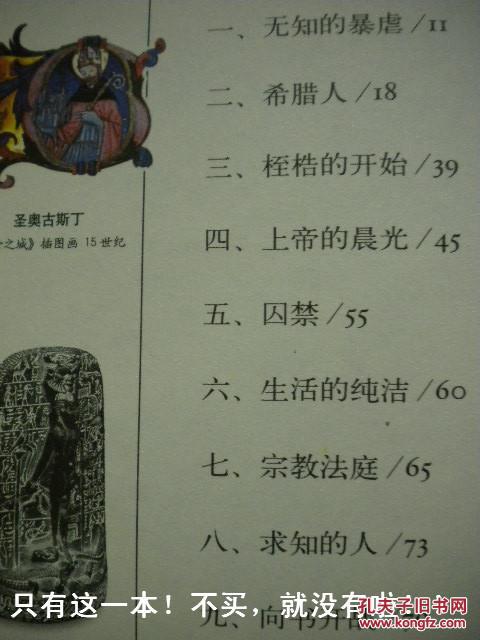 一、无知的暴虐/11
二、希腊人/18
三、桎梏的开始/39
圣奥古斯丁
之城》插图画 15世纪
四、上帝的晨光/45
五、囚禁/55
六、生活的纯洁/60
七、宗教法庭/65
八、求知的人/73
只有这一本！不买，就没有啦！
九、向书开
孔夫子旧书网
www.kongfz.com